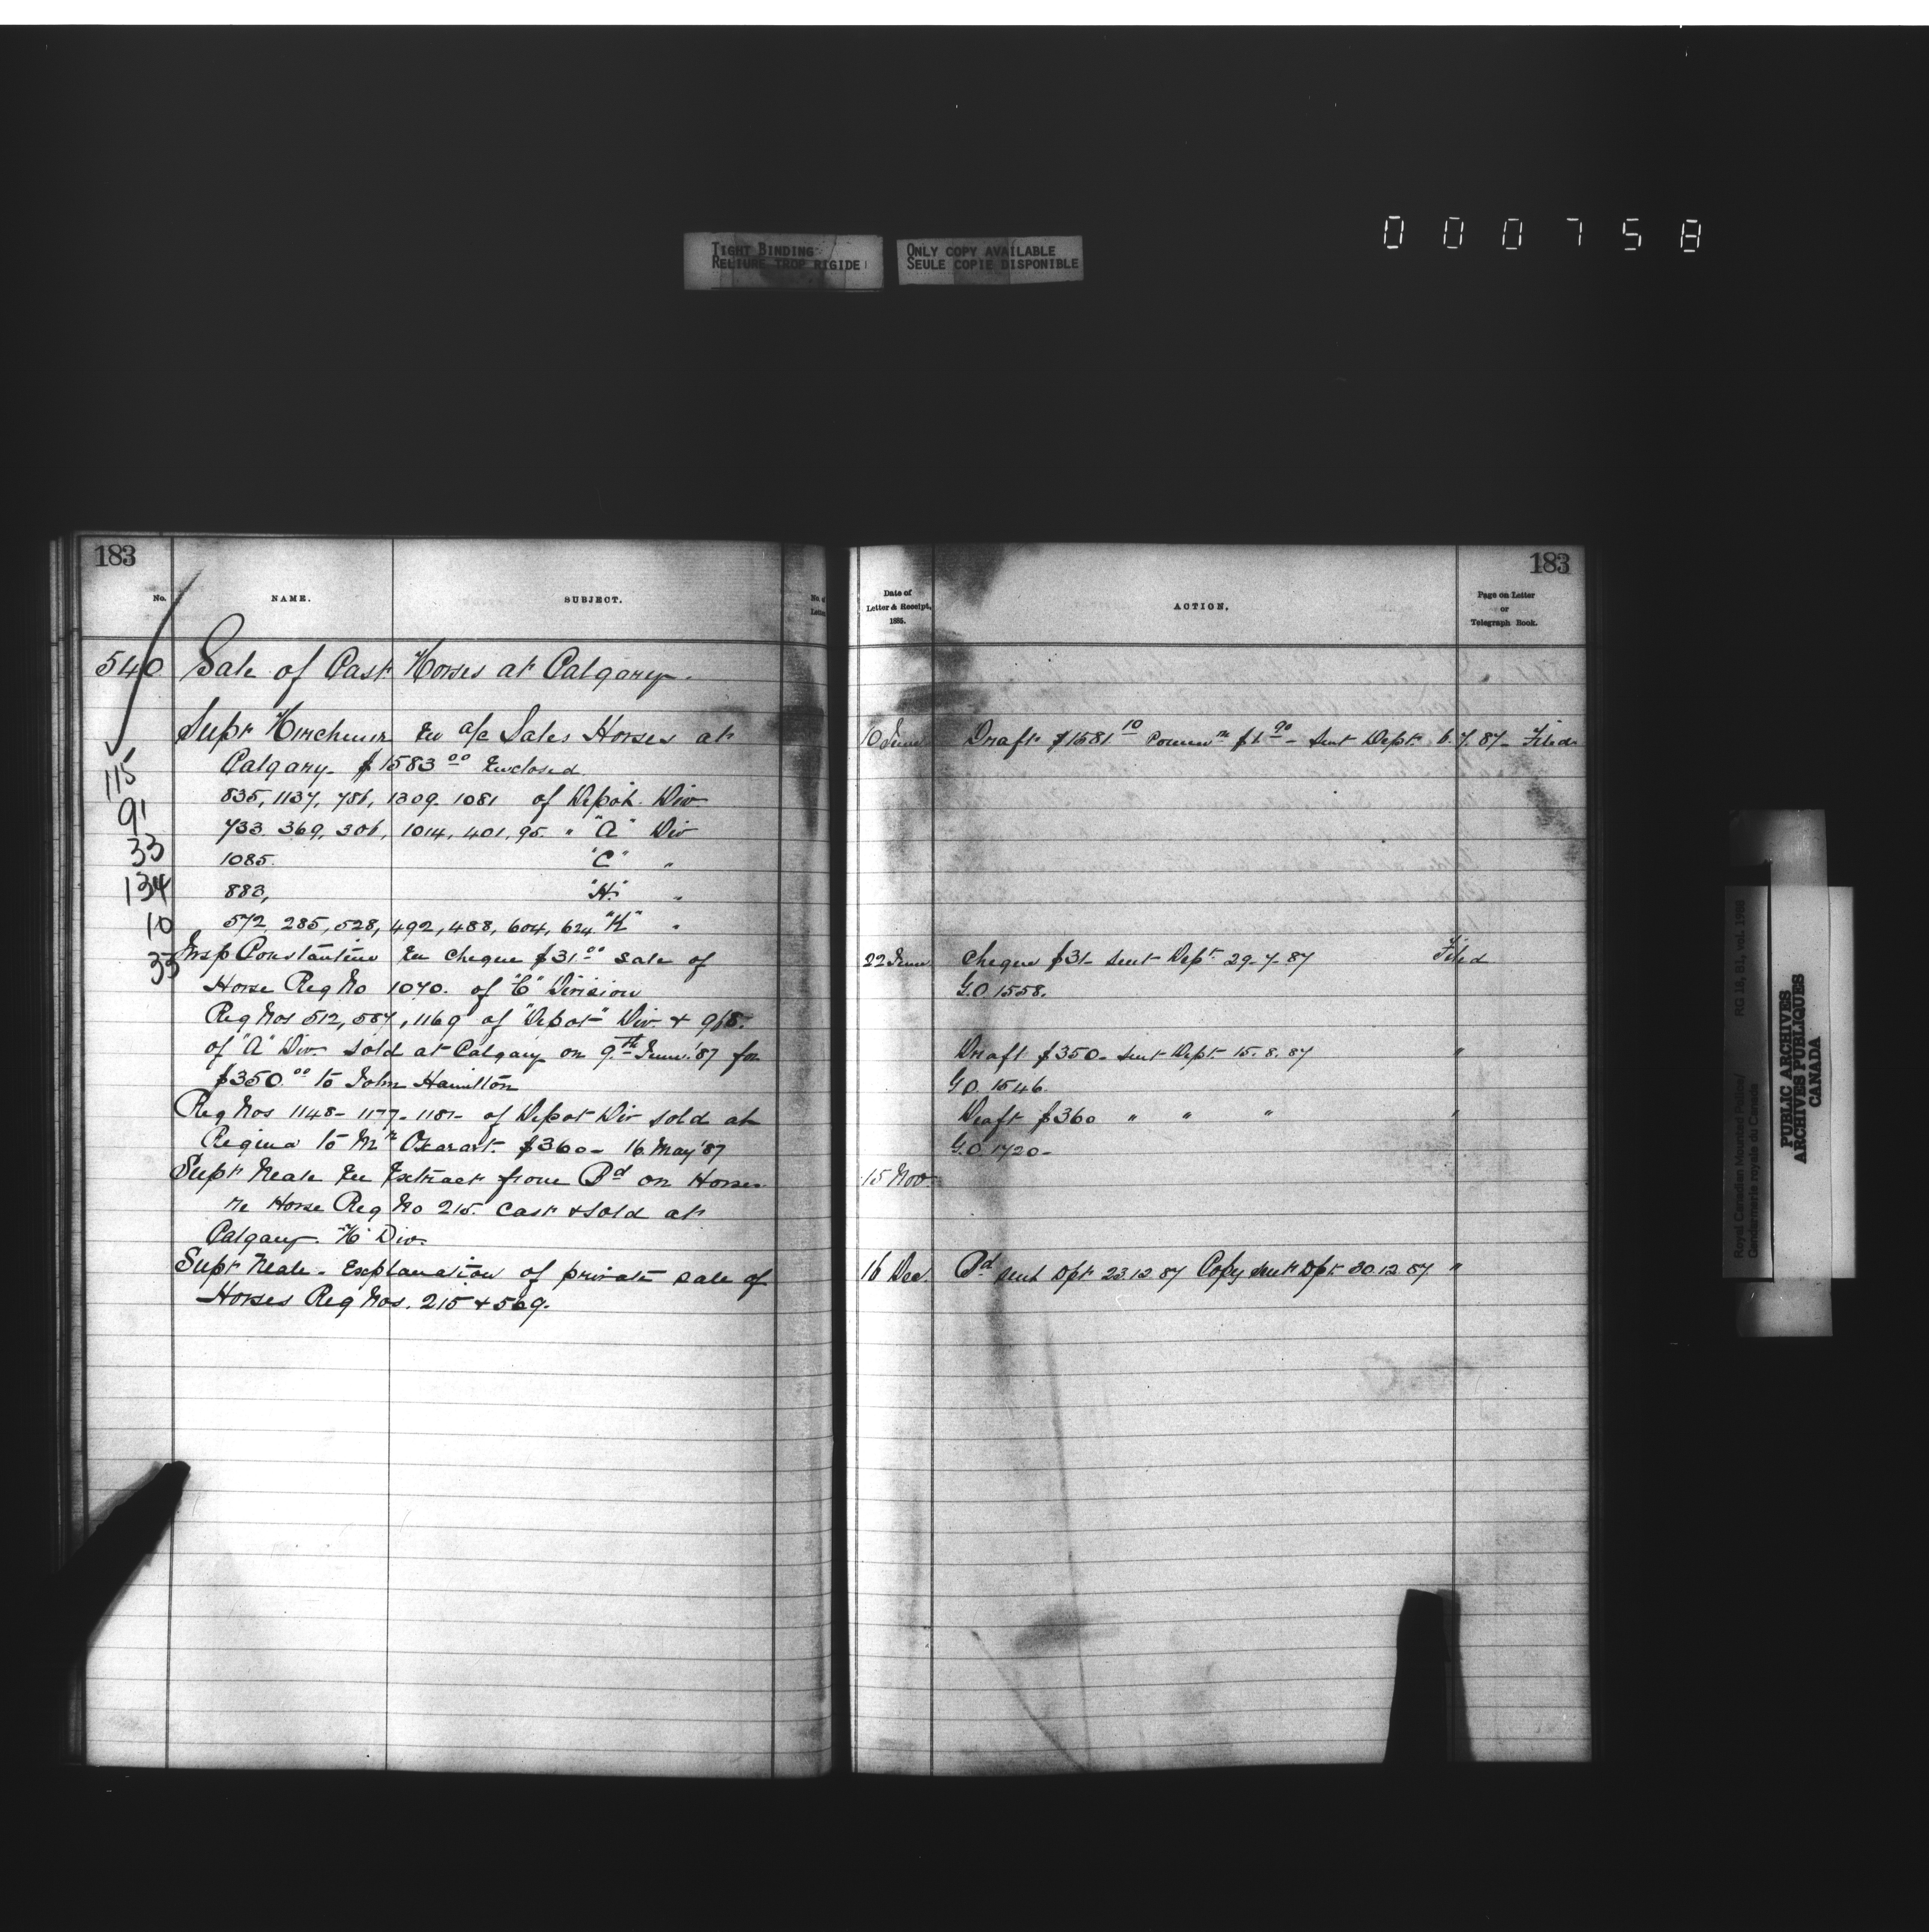 000758
TIGHT BINDING
RELIURE TROP RIGIDE
ONLY COPY AVAILABLE
SEULE COPIE DISPONIBLE
183
No.
NAME.
SUBJECT.
540 Sale of Cast Horses at Calgary.
Supt Herchmer En a/c Sales Horses at
Calgary. $1583 00 Enclosed
115
835, 1137, 786, 1309. 1081 of Depot. Div
91
733, 369, 306, 1014, 401, 95. " "A" Div
33
1085. "C" "
134
883, "H." "
10
572, 285, 528, 492, 488, 604, 624 "K" "
33
Insp Constantine En Cheque $31.00 sale of
Horse Reg No 1070. of "C" Division
Reg Nos 512, 587, 1169 of "Depot" Div. & 968.
of "A" Div. sold at Calgary on 9th June '87 for
$350.00 to John Hamilton
Reg Nos 1148- 1177- 1181- of Depot Div sold at
Regina to Mr Oxarart. $360- 16 May '87
Supt Neale En Extract from Bd on Horses
re Horse Reg No 215. Cast & sold at
Calgary. "K" Div.
Supt Neale. Explanation of private sale of
Horses Reg Nos. 215 & 569.
183
Date of
Letter & Receipt,
1885.
ACTION.
Page on Letter
or
Telegraph Book.
10 June Draft $1581 10 Commn $1 90 - sent Dept 6.7.87- Filed
22 June Cheque $31- sent Dept 29-7-87 Filed
G.O. 1558.
Draft $350- sent Dept. 15.8.87 "
G.O. 1546.
Draft $360 " " " "
G.O. 1720-
15 Nov.
16 Dec. Bd sent Dpt 23.12.87 Copy sent Dpt 30.12.87 "
Royal Canadian Mounted Police/
Gendarmerie royale du Canada
RG 18, B1, vol. 1988
PUBLIC ARCHIVES
ARCHIVES PUBLIQUES
CANADA